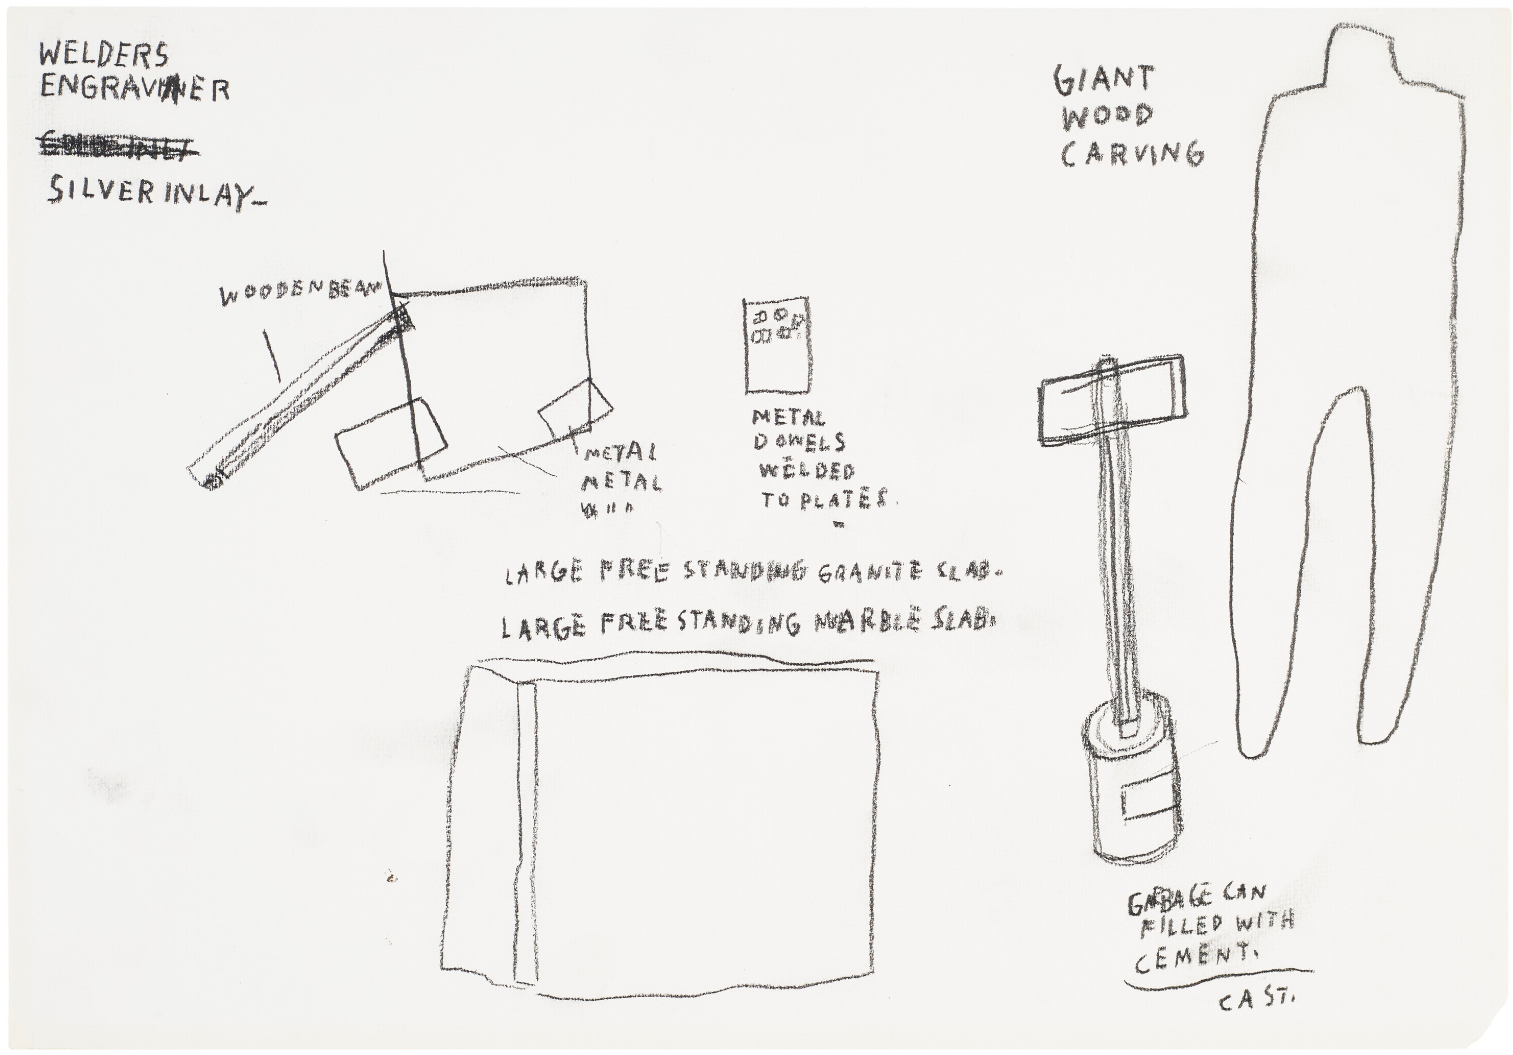 WELDERS
ENGRAVER
SILVER INLAY_
GIANT
WOOD
CARVING
WOODEN BEAM
METAL
METAL
METAL
DOWELS
WELDED
TO PLATES.
LARGE FREE STANDING GRANITE SLAB.
LARGE FREE STANDING MARBLE SLAB.
GARBAGE CAN
FILLED WITH
CEMENT.
CAST.